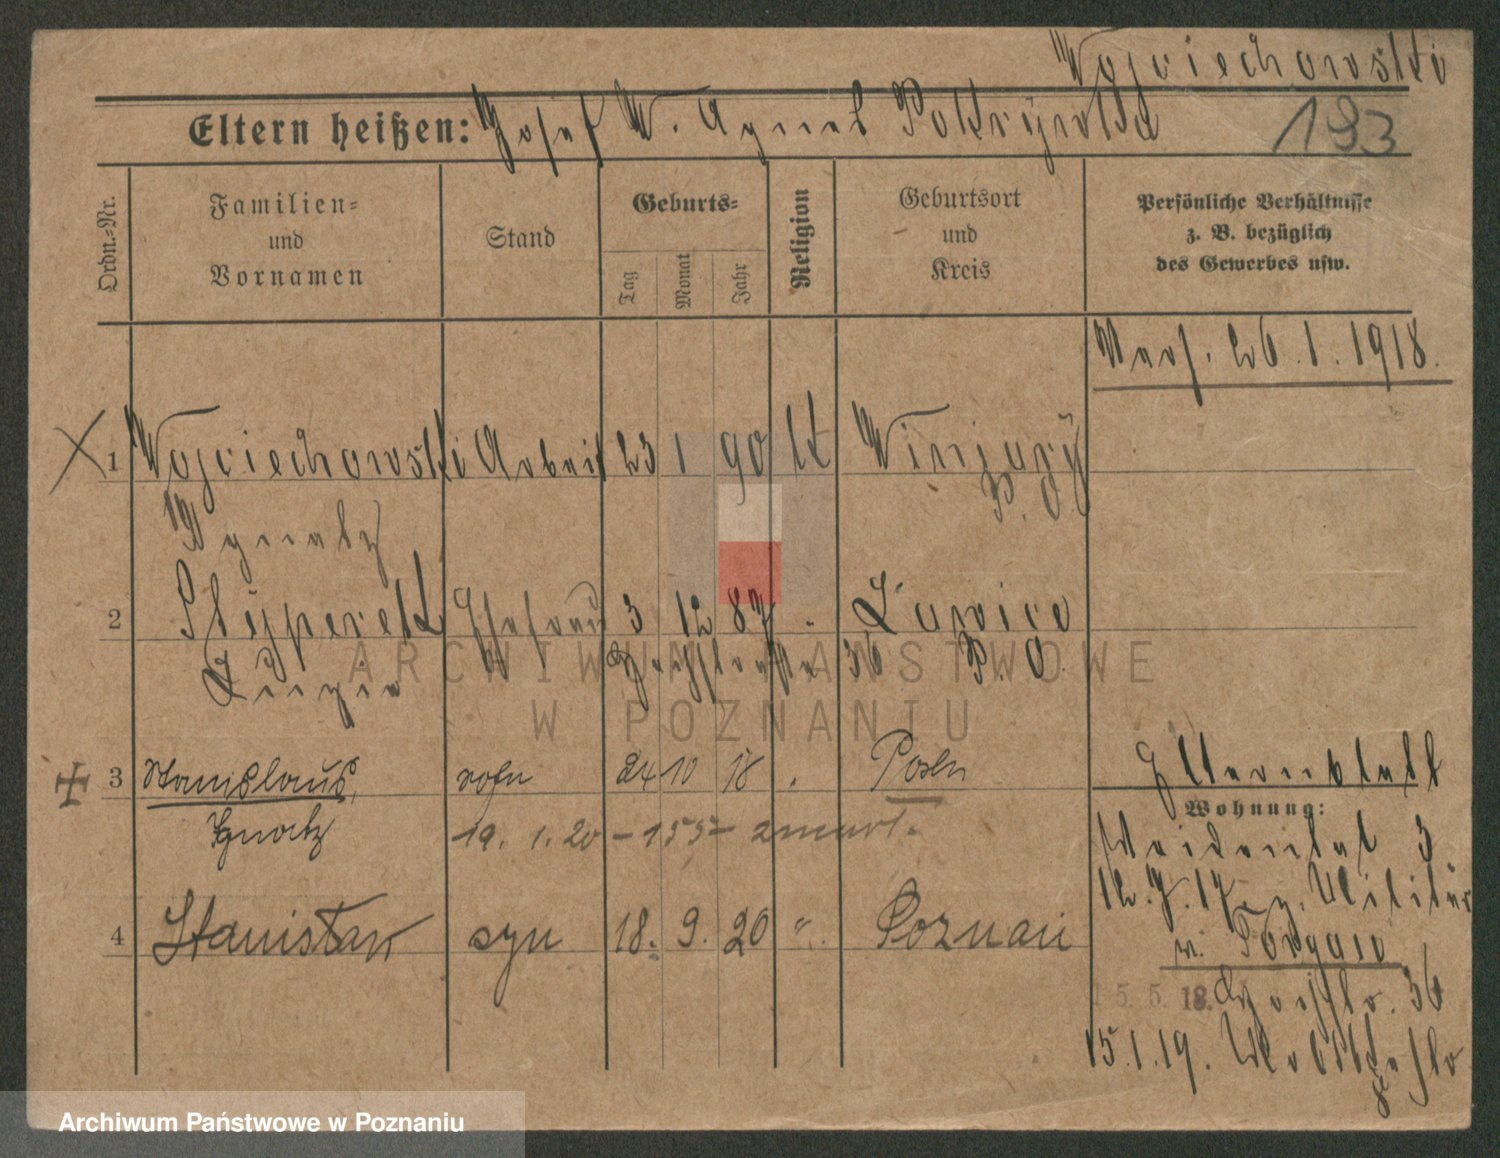 Wojciechowski
Eltern heißen: Josef W. Agnes Pokrywka
193
Ordn.-Nr.
Familien-
und
Vornamen
Stand
Geburts-
Tag
Monat
Jahr
Religion
Geburtsort
und
Kreis
Persönliche Verhältnisse
z. B. bezüglich
des Gewerbes usw.
26.1.1918.
1 Wojciechowski Arbeit 23 1 90 k Winiary
Ignatz P. O.
2 Szyperek Ehefrau 3 12 87 Ławica
36 P. O.
3 Stanislaus, sohn 24 10 18 Posen
Ignatz 19. 1. 20 - 155 - zmarł.
4 Stanisław syn 18. 9. 20 " Poznań
Elternblatt
Wohnung:
3
12.7.17. z. Militär
15. 5. 18. 36
15.1.19.
ARCHIWUM PAŃSTWOWE
W POZNANIU
Archiwum Państwowe w Poznaniu